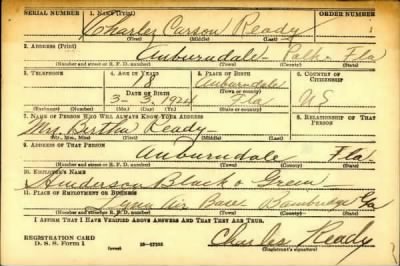 SERIAL NUMBER 1. NAME (Print) ORDER NUMBER
Charles Carson Ready
(First) (Middle) (Last)
2. ADDRESS (Print)
Auburndale - Polk - Fla
(Number and street or R. F. D. number) (Town) (County) (State)
3. TELEPHONE 4. AGE IN YEARS 5. PLACE OF BIRTH 6. COUNTRY OF CITIZENSHIP
Auburndale
(Town or county)
DATE OF BIRTH
3- 3- 1924 Fla U S
(Exchange) (Number) (Mo.) (Day) (Yr.) (State or country)
7. NAME OF PERSON WHO WILL ALWAYS KNOW YOUR ADDRESS 8. RELATIONSHIP OF THAT PERSON
Mrs. Bertha Ready -
(Mr., Mrs., Miss) (First) (Middle) (Last)
9. ADDRESS OF THAT PERSON
Auburndale Fla.
(Number and street or R. F. D. number) (Town) (County) (State)
10. EMPLOYER'S NAME
Anderson Black & Green -
11. PLACE OF EMPLOYMENT OR BUSINESS
Air Base Bainbridge Ga
(Number and street or R. F. D. number) (Town) (County) (State)
I AFFIRM THAT I HAVE VERIFIED ABOVE ANSWERS AND THAT THEY ARE TRUE.
REGISTRATION CARD
D. S. S. Form 1 Charles Ready
(Registrant's signature)